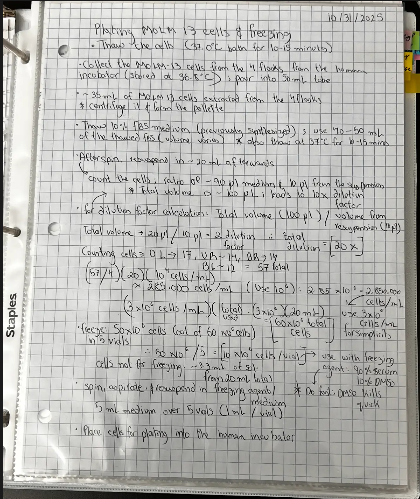 10/31/2025
Plating MOLM 13 cells & freezing
• Thaw the cells (37.0°C bath for 10-15 minutes)
• Collect the MOLM-13 cells from the 4 flasks from the human
incubator (stored at 36.8°C); pour into 50 mL tube
• ~35 mL of MOLM 13 cells extracted from the 4 flasks
& centrifuge it & form the pellete
• Thaw 10% FBS medium (previously synthesized); use 40-50 mL
of the thawed FBS (volume varies) * also thaw at 37°C for 10-15 mins
• After spin, resuspend in ~20 mL of the
count the cells; ratio of ~90 µl medium & 10 µl from the resuspension
* Total volume is ~100 µl; leads to 10x dilution
factor
• For dilution factor calculation: Total volume (100 µl) / volume from
resuspension (10 µl)
Total volume = 20 µl / 10 µl = 2 dilution
factor
∴ total
dilution = [20x]
Counting cells = UL → 17, UR → 14, BR → 14
BL → 12 = 57 total
(57/4)(20)(10⁴ cells/mL)
≈ 285,000 cells/mL (use 10⁶): 2.85 x10⁶ = 2,850,000
cells/mL
(3x10⁶ cells/mL)(total vol) = (3x10⁶)(20 mL)
= 60x10⁶ total
cells
use 3x10⁶
cells/mL
for simplicity
• Freeze 50x10⁶ cells (out of 60x10⁶ cells)
in 5 vials
∴ 50x10⁶/5 = [10x10⁶ cells/vial] → use with freezing
agent: 90% serum
10% DMSO
cells not for freezing: ~3.3 mL of
from 20 mL total
• spin, aspirate, & resuspend in freezing agent/
medium
* Do fast; DMSO kills
quick
5 mL medium over 5 vials (1 mL/vial)
• Place cells for plating into the human incubator
Staples